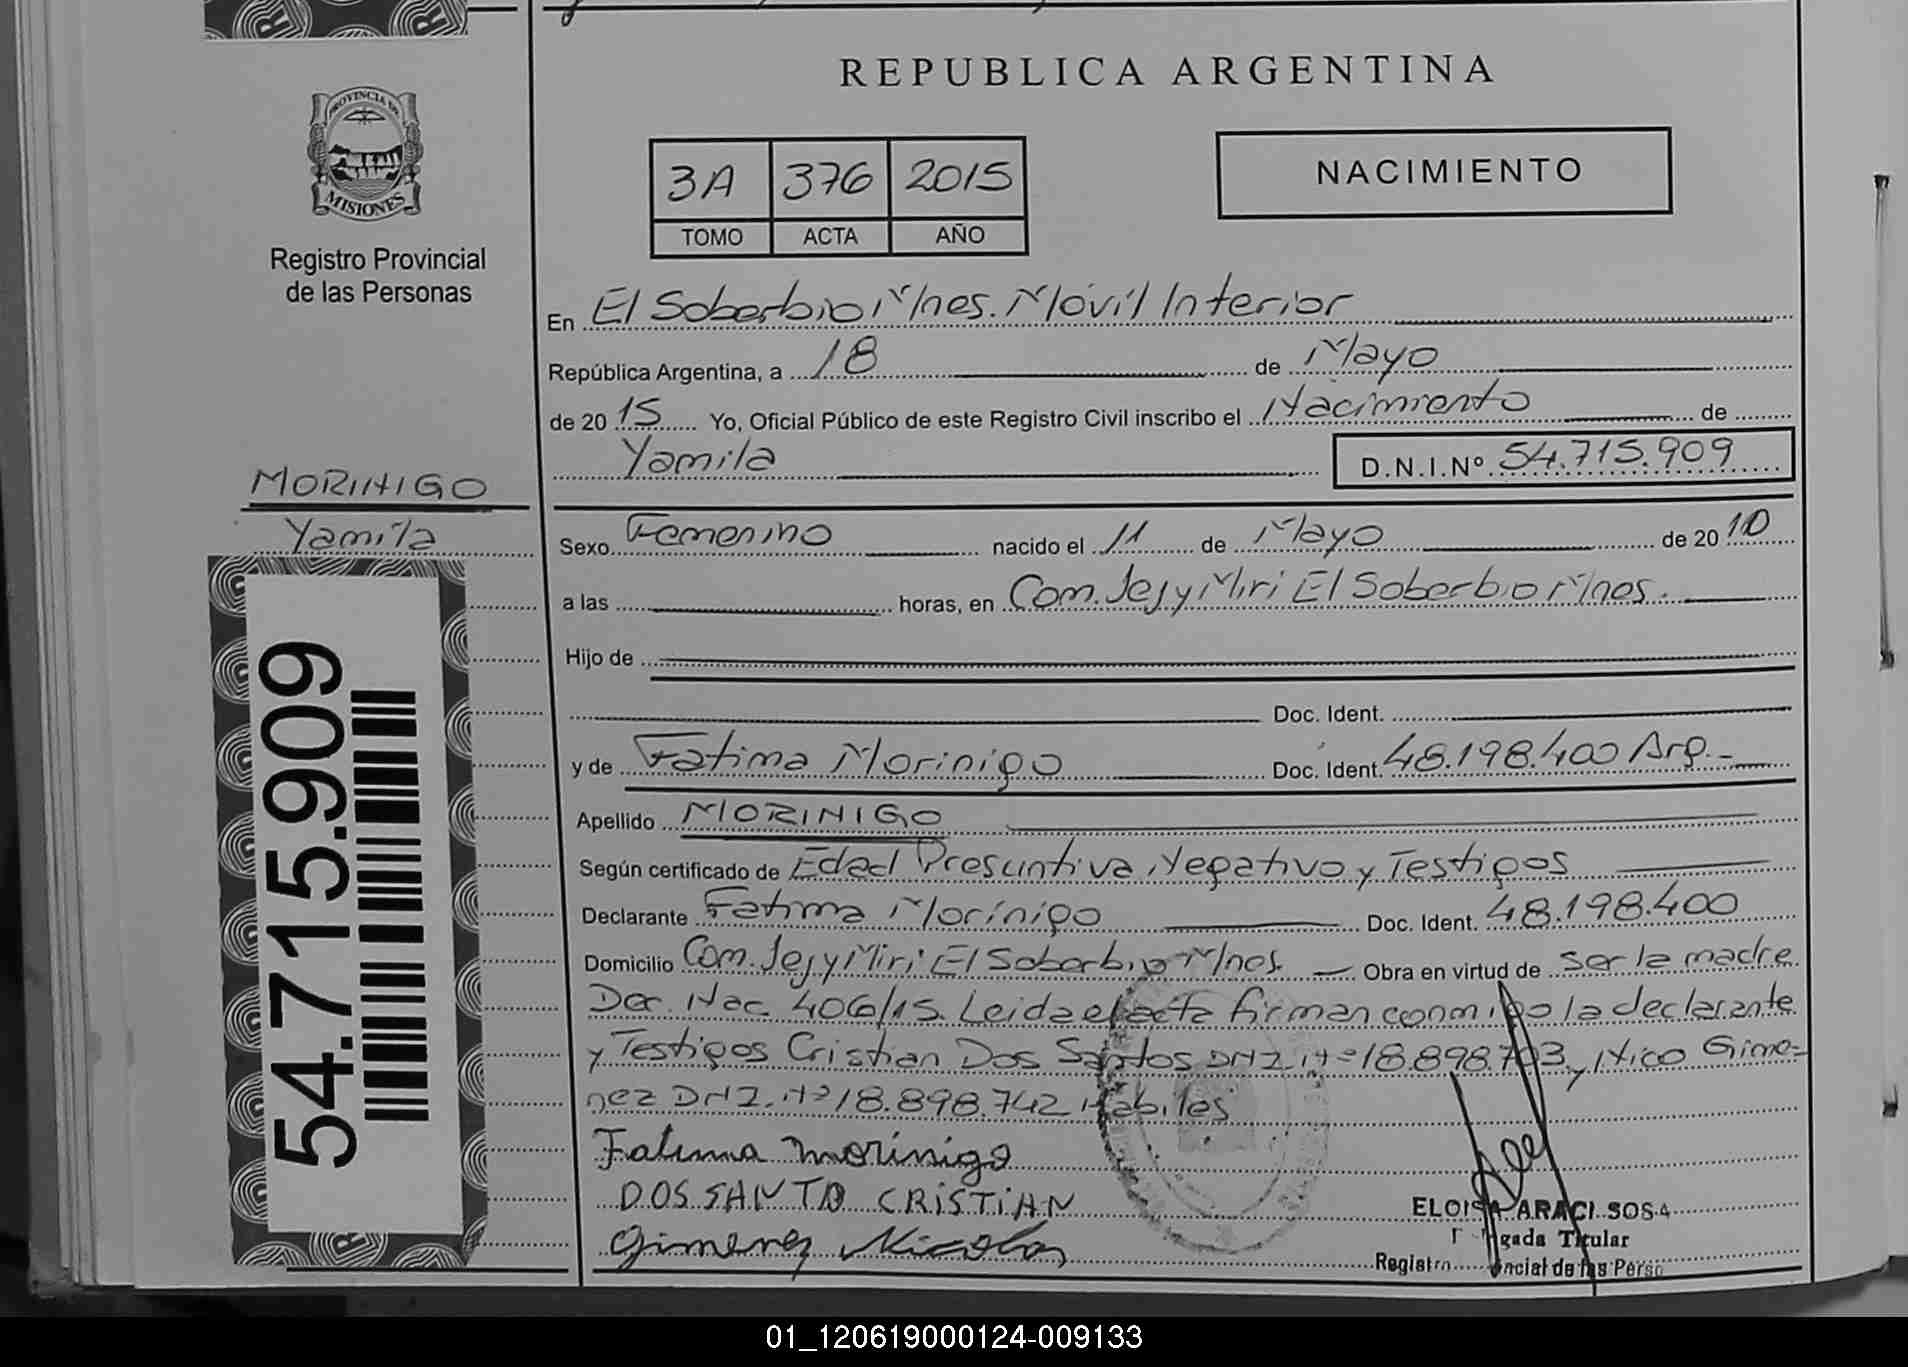 REPUBLICA ARGENTINA
PROVINCIA DE
MISIONES
Registro Provincial
de las Personas
3A 376 2015
TOMO ACTA AÑO
NACIMIENTO
En El Soberbio Mnes. Móvil Interior
República Argentina, a 18 de Mayo
de 2015 Yo, Oficial Público de este Registro Civil inscribo el Nacimiento de
Yamila D.N.I.Nº 54.715.909
MORINIGO
Yamila
Sexo Femenino nacido el 11 de Mayo de 2010
a las horas, en Com. Jejy Miri El Soberbio Mnes.
Hijo de
Doc. Ident.
y de Fatima Morinigo Doc. Ident. 48.198.400 Arg.
Apellido MORINIGO
Según certificado de Edad Presuntiva Negativo y Testigos
Declarante Fatima Morínigo Doc. Ident. 48.198.400
Domicilio Com. Jejy Miri El Soberbio Mnes. Obra en virtud de ser la madre
Dec. Nac. 406/15. Leida el acta firman conmigo la declarante
y Testigos Cristian Dos Santos DNI. Nº 18.898.703 y Nico Gime-
nez DNI. Nº 18.898.742 Habiles
Fatima morínigo
DOS SANTO CRISTIAN
Gimenez Nicolas
ELOISA ARACI SOSA
Titular
54.715.909
01_120619000124-009133